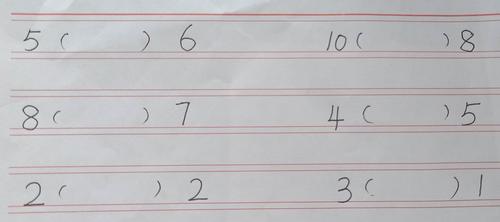 5 ( ) 6 10 ( ) 8
8 ( ) 7 4 ( ) 5
2 ( ) 2 3 ( ) 1